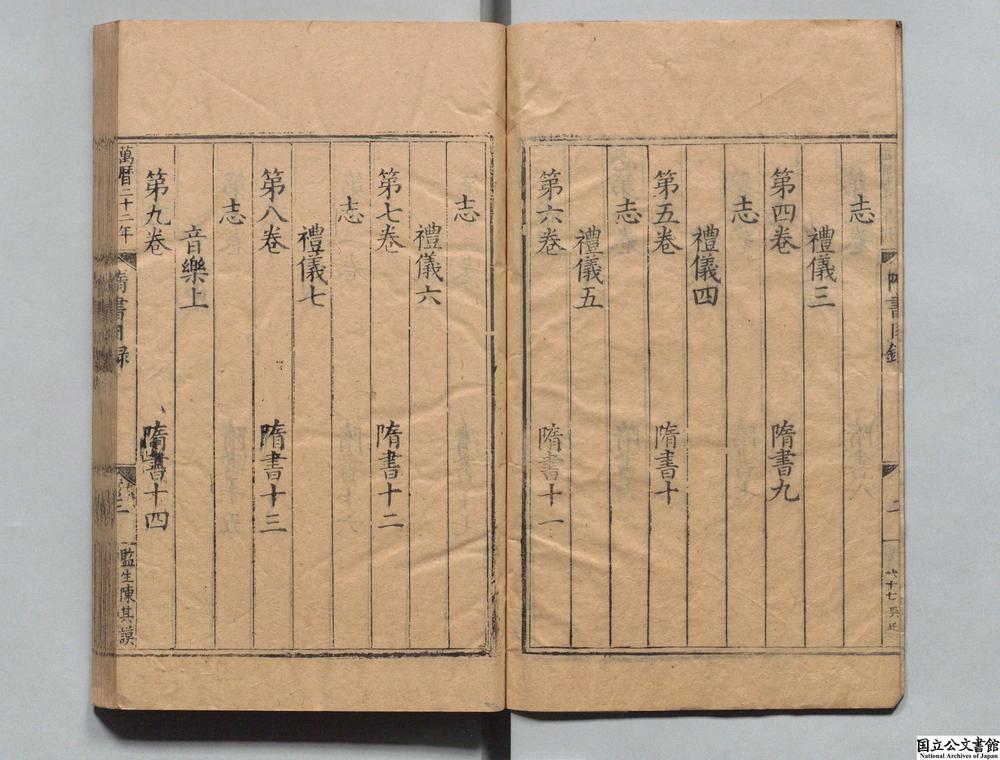 志
禮儀三
第四卷 隋書九
志
禮儀四
第五卷 隋書十
志
禮儀五
第六卷 隋書十一
志
禮儀六
第七卷 隋書十二
志
禮儀七
第八卷 隋書十三
志
音樂上
第九卷 隋書十四
萬曆二十二年 隋書目録
監生陳其謨
国立公文書館
National Archives of Japan